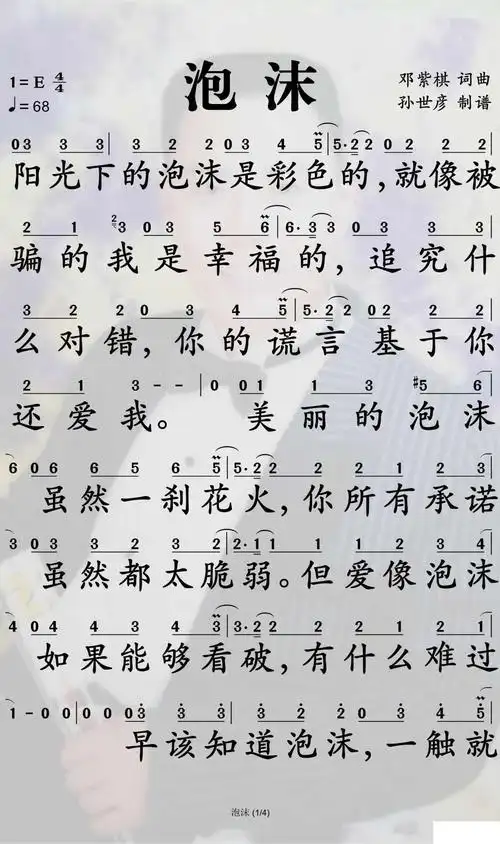 泡沫
1=E 4/4
♩=68
邓紫棋 词曲
孙世彦 制谱
03 3 3| 3 2 2 03 4 5|5·2 2 02 2
阳光下的泡沫是彩色的,就像被
2 1 3 03 5 6|6·3 3 03 3
骗的我是幸福的,追究什
3 2 2 0 3 4 5|5·2 2 02 2
么对错,你的谎言基于你
2 1 3 - -|0 01 1 3 #5 6
还爱我。 美丽的泡沫
6 06 6 5 6 5|5·2 2 2 2 1 2 3|
虽然一刹花火,你所有承诺
3 03 3 2 3 2|2·1 1 1 1 2 3 4|
虽然都太脆弱。但爱像泡沫
4 04 4 3 4 3|3·2 2 2 2 1 2 1|
如果能够看破,有什么难过
1 - 0 0|0 0 03 3 3|3 02 2 2 03 4 5|
早该知道泡沫,一触就
泡沫 (1/4)